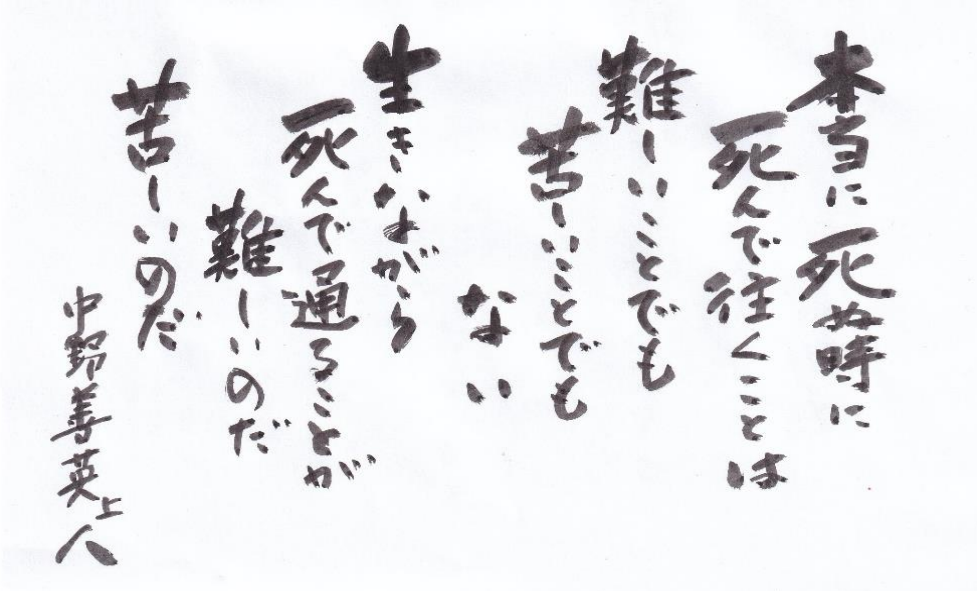 本当に死ぬ時に
死んで往くことは
難しいことでも
苦しいことでも
ない
生きながら
死んで通ることが
難しいのだ
苦しいのだ
中野善英上人